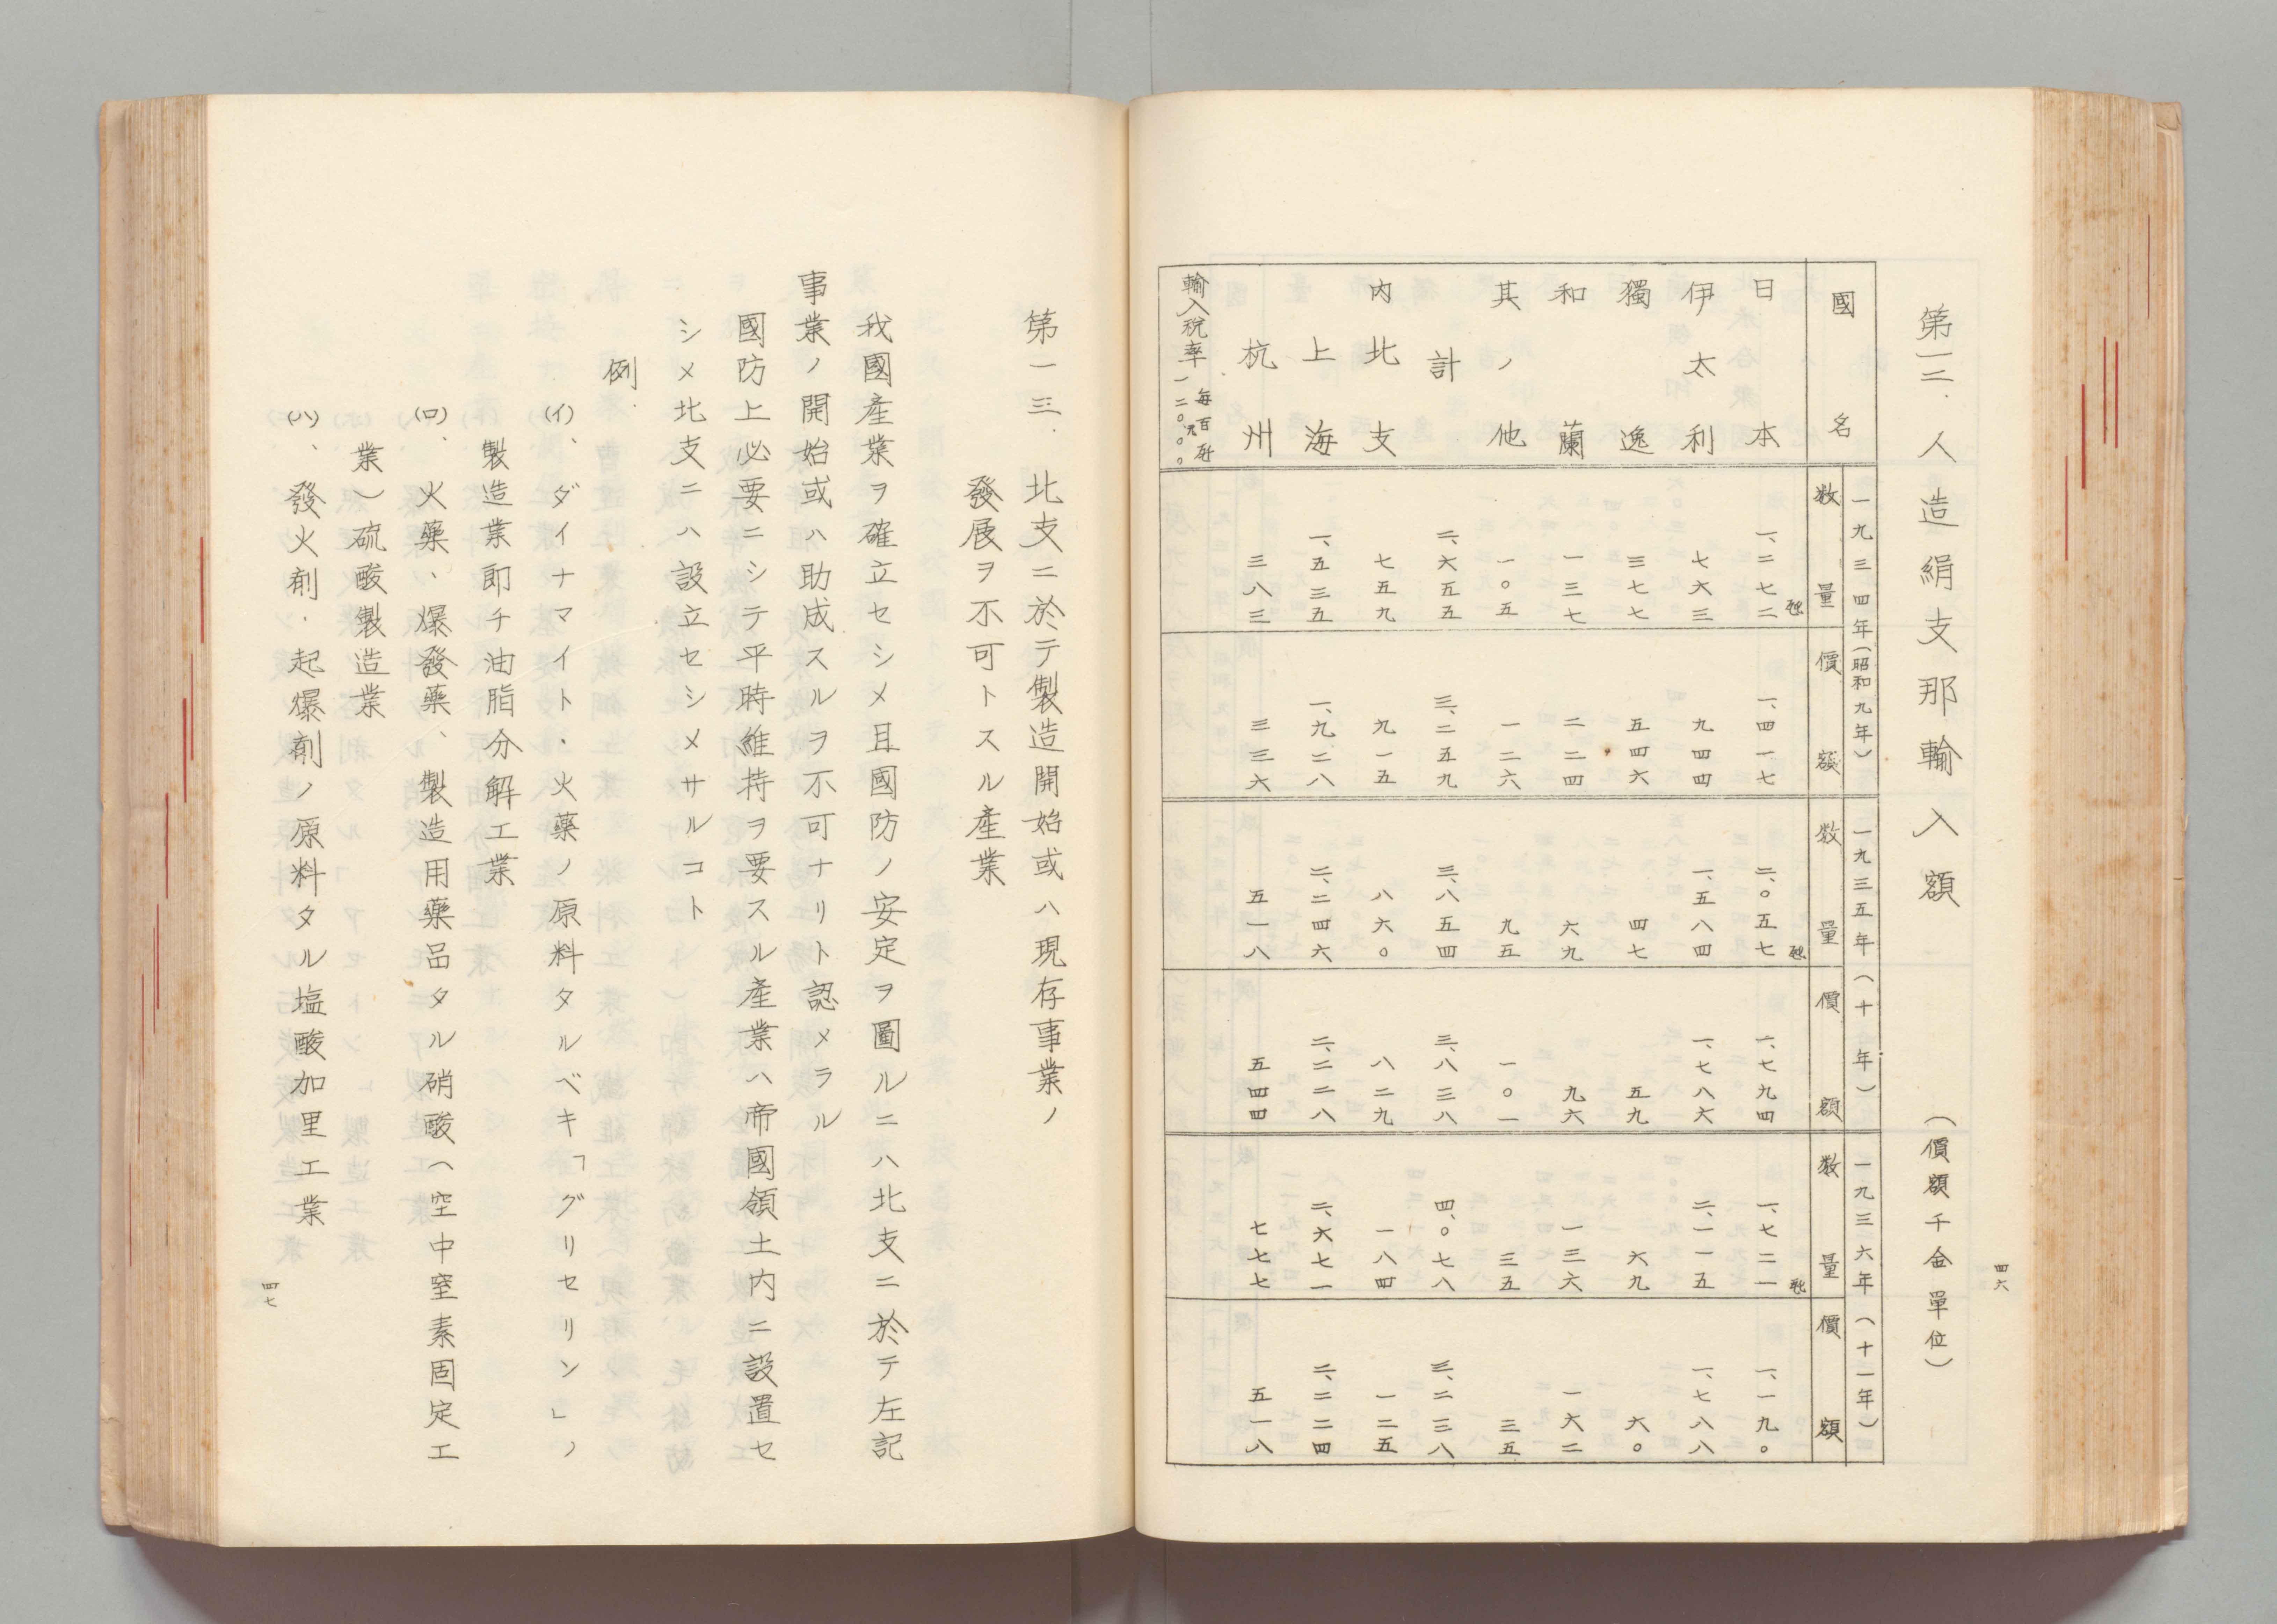 四六
第一二．人造絹支那輸入額　（價額千金單位）
一九三四年（昭和九年）　一九三五年（十年）　一九三六年（十一年）
國名　数量　價額　数量　價額　数量　價額
日本　一、二七二瓲　一、四一七　二、〇五七瓲　一、七九四　一、七二一瓲　一、一九〇
伊太利　七六三　九四四　一、五八四　一、七八六　二、一一五　一、七八八
獨逸　三七七　五四六　四七　五九　六九　六〇
和蘭　一三七　二二四　六九　九六　一三六　一六二
其ノ他　一〇五　一二六　九五　一〇一　三五　三五
計　二、六五五　三、二五九　三、八五四　三、八三八　四、〇七八　三、二三八
内北支　七五九　九一五　八六〇　八二九　一八四　一二五
上海　一、五三五　一、九二八　二、二四六　二、二二八　二、六七一　二、二二四
杭州　三八三　三三六　五一八　五四四　七七七　五一八
輸入税率　毎百瓩　一二〇.〇〇
第一三．北支ニ於テ製造開始或ハ現存事業ノ
發展ヲ不可トスル產業
我國產業ヲ確立セシメ且國防ノ安定ヲ圖ルニハ北支ニ於テ左記
事業ノ開始或ハ助成スルヲ不可ナリト認メラル
國防上必要ニシテ平時維持ヲ要スル產業ハ帝國領土内ニ設置セ
シメ北支ニハ設立セシメサルコト
例．
(イ)、ダイナマイト・火藥ノ原料タルベキ「グリセリン」ノ
製造業卽チ油脂分解工業
(ロ)、火藥、爆發藥、製造用藥品タル硝酸（空中窒素固定工
業）硫酸製造業
(ハ)、發火劑．起爆劑ノ原料タル塩酸加里工業
四七